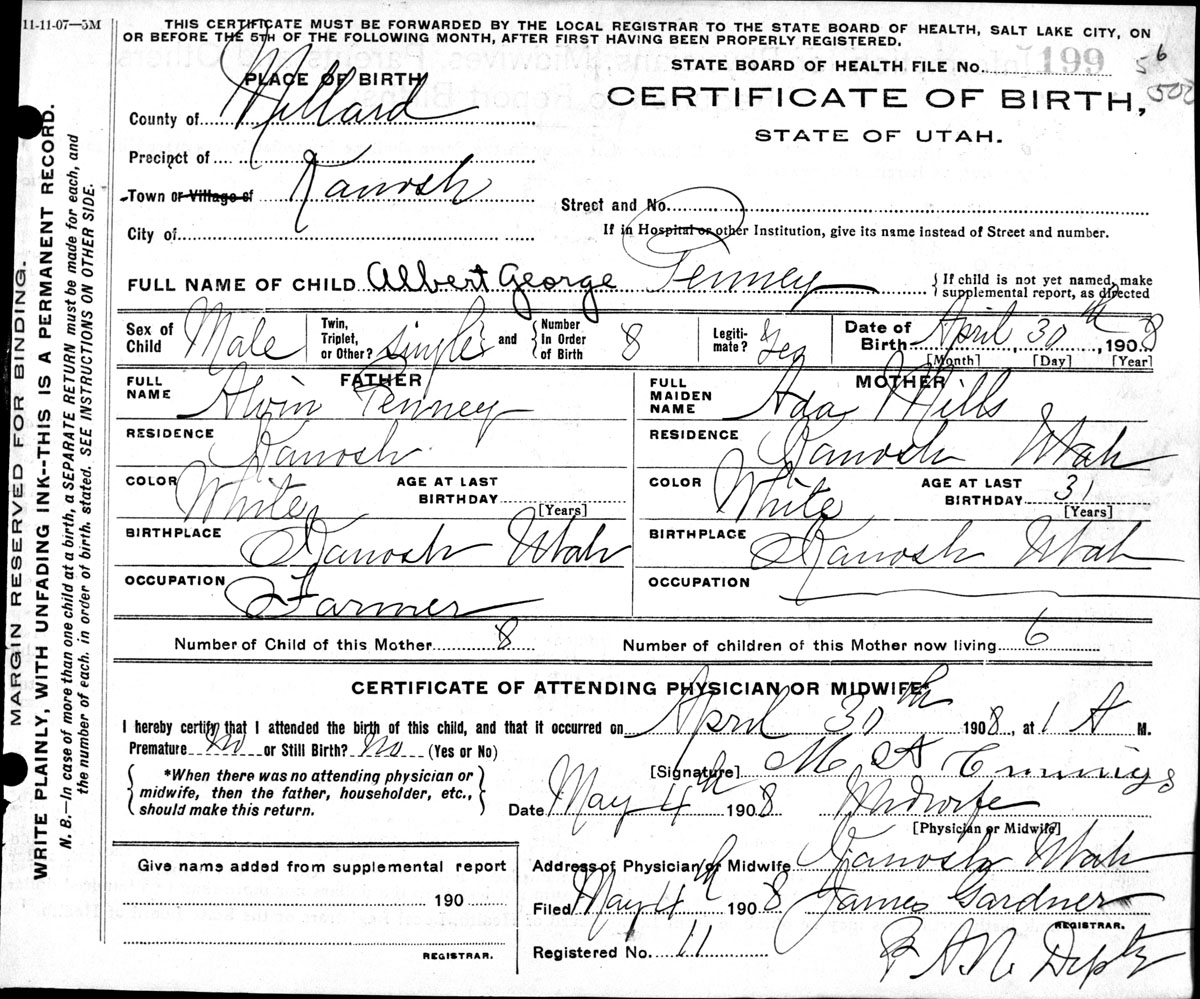 11-11-07—5M
THIS CERTIFICATE MUST BE FORWARDED BY THE LOCAL REGISTRAR TO THE STATE BOARD OF HEALTH, SALT LAKE CITY, ON
OR BEFORE THE 5TH OF THE FOLLOWING MONTH, AFTER FIRST HAVING BEEN PROPERLY REGISTERED.
STATE BOARD OF HEALTH FILE No. 199 56
500
PLACE OF BIRTH
CERTIFICATE OF BIRTH,
STATE OF UTAH.
County of Millard
Precinct of
Town or Village of Kanosh
City of
Street and No.
If in Hospital or other Institution, give its name instead of Street and number.
FULL NAME OF CHILD Albert George Penney
{ If child is not yet named, make
supplemental report, as directed
Sex of Child Male
Twin, Triplet, or Other? Single and { Number In Order of Birth 8
Legitimate? Yes
Date of Birth April 30th, 1908
[Month] [Day] [Year]
FATHER
FULL NAME Alvin Penney
RESIDENCE Kanosh
COLOR White AGE AT LAST BIRTHDAY [Years]
BIRTHPLACE Kanosh Utah
OCCUPATION Farmer
MOTHER
FULL MAIDEN NAME Ada Mills
RESIDENCE Kanosh Utah
COLOR White AGE AT LAST BIRTHDAY 31 [Years]
BIRTHPLACE Kanosh Utah
OCCUPATION
Number of Child of this Mother 8 Number of children of this Mother now living 6
CERTIFICATE OF ATTENDING PHYSICIAN OR MIDWIFE*
I hereby certify that I attended the birth of this child, and that it occurred on April 30th 1908, at 1 A M.
Premature No or Still Birth? No (Yes or No)
{ *When there was no attending physician or
midwife, then the father, householder, etc.,
should make this return. }
[Signature] M A
Date May 4th 1908 Midwife
[Physician or Midwife]
Address of Physician or Midwife Kanosh Utah
Filed May 4th 1908 James Gardner
REGISTRAR.
Registered No. 11
Depty
Give name added from supplemental report
190
REGISTRAR.
MARGIN RESERVED FOR BINDING.
WRITE PLAINLY, WITH UNFADING INK--THIS IS A PERMANENT RECORD.
N. B.—In case of more than one child at a birth, a SEPARATE RETURN must be made for each, and
the number of each, in order of birth, stated. SEE INSTRUCTIONS ON OTHER SIDE.